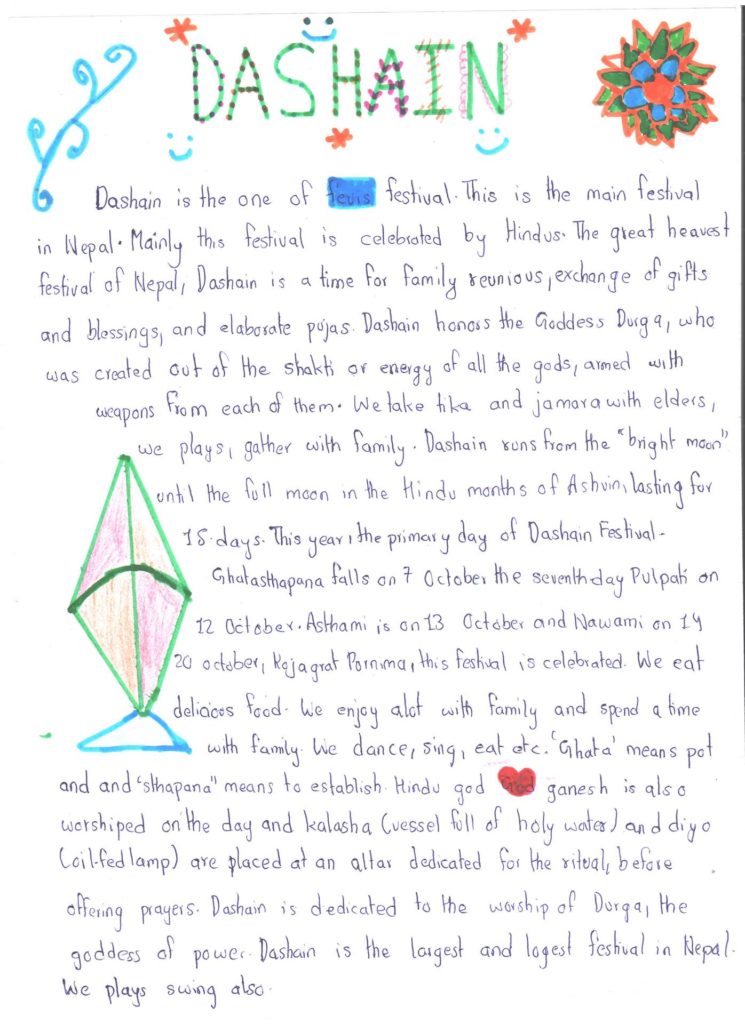 DASHAIN
Dashain is the one of fevis festival. This is the main festival
in Nepal. Mainly this festival is celebrated by Hindus. The great heavest
festival of Nepal, Dashain is a time for family reunious, exchange of gifts
and blessings, and elaborate pujas. Dashain honors the Goddess Durga, who
was created out of the shakti or energy of all the gods, armed with
weapons from each of them. We take tika and jamara with elders,
we plays, gather with family. Dashain runs from the "bright moon"
until the full moon in the Hindu months of Ashvin, lasting for
15.days. This year, the primary day of Dashain Festival-
Ghatasthapana falls on 7 October the seventh day Pulpati on
12 October. Asthami is on 13 October and Nawami on 14
20 october, Kojagrat Pornima, this festival is celebrated. We eat
delicious food. We enjoy alot with family and spend a time
with family. We dance, sing, eat etc. 'Ghata' means pot
and and "sthapana" means to establish. Hindu god ganesh is also
worshiped on the day and kalasha (vessel full of holy water) and diyo
(oil-fed lamp) are placed at an altar dedicated for the ritual, before
offering prayers. Dashain is dedicated to the worship of Durga, the
goddess of power. Dashain is the largest and logest festival in Nepal.
We plays swing also.